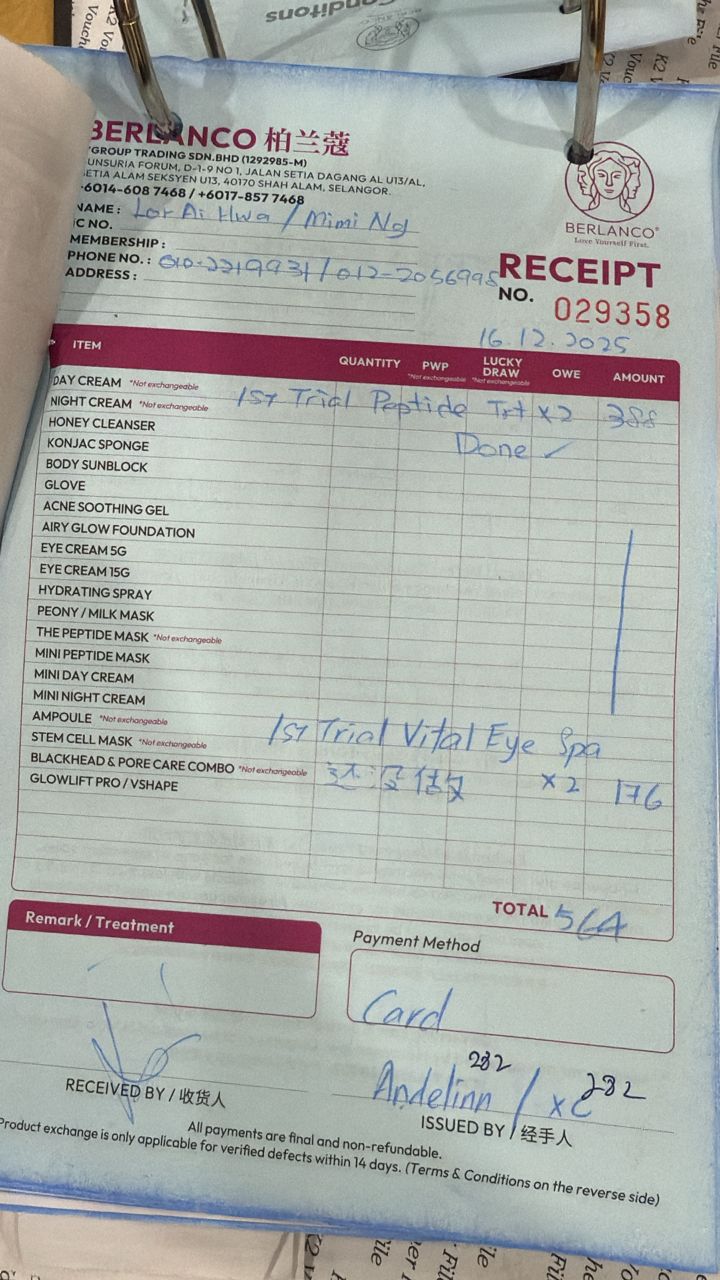 BERLANCO 柏兰蔻
GROUP TRADING SDN.BHD (1292985-M)
UNSURIA FORUM, D-1-9 NO 1, JALAN SETIA DAGANG AL U13/AL,
ETIA ALAM SEKSYEN U13, 40170 SHAH ALAM, SELANGOR.
6014-608 7468 / +6017-857 7468
NAME : Lor Ai Hwa / Mimi Ng
IC NO.
MEMBERSHIP :
PHONE NO. : 010-2219931 / 012-2056998
ADDRESS :
BERLANCO®
Love Yourself First.
RECEIPT
NO. 029358
16.12.2025
ITEM QUANTITY PWP *Not exchangeable LUCKY DRAW *Not exchangeable OWE AMOUNT
DAY CREAM *Not exchangeable
NIGHT CREAM *Not exchangeable 1st Trial Peptide Trt x2 388
HONEY CLEANSER Done ✓
KONJAC SPONGE
BODY SUNBLOCK
GLOVE
ACNE SOOTHING GEL
AIRY GLOW FOUNDATION
EYE CREAM 5G
EYE CREAM 15G
HYDRATING SPRAY
PEONY / MILK MASK
THE PEPTIDE MASK *Not exchangeable
MINI PEPTIDE MASK
MINI DAY CREAM
MINI NIGHT CREAM
AMPOULE *Not exchangeable 1st Trial Vital Eye Spa
STEM CELL MASK *Not exchangeable
BLACKHEAD & PORE CARE COMBO *Not exchangeable 还没 x2 176
GLOWLIFT PRO / VSHAPE
TOTAL 564
Remark / Treatment
Payment Method
Card
282 282
Andelinn / xc
RECEIVED BY / 收货人
ISSUED BY / 经手人
All payments are final and non-refundable.
Product exchange is only applicable for verified defects within 14 days. (Terms & Conditions on the reverse side)